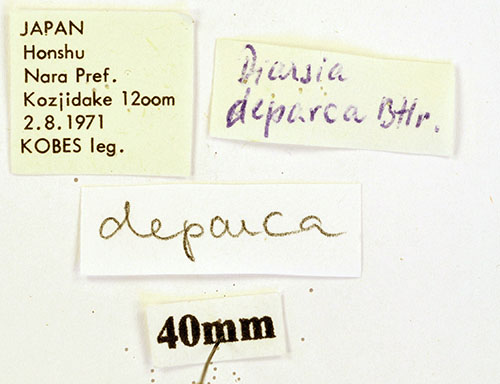 JAPAN
Honshu
Nara Pref.
Kozjidake 12oom
2.8.1971
KOBES leg.
Diarsia
deparca BHr.
deparca
40mm